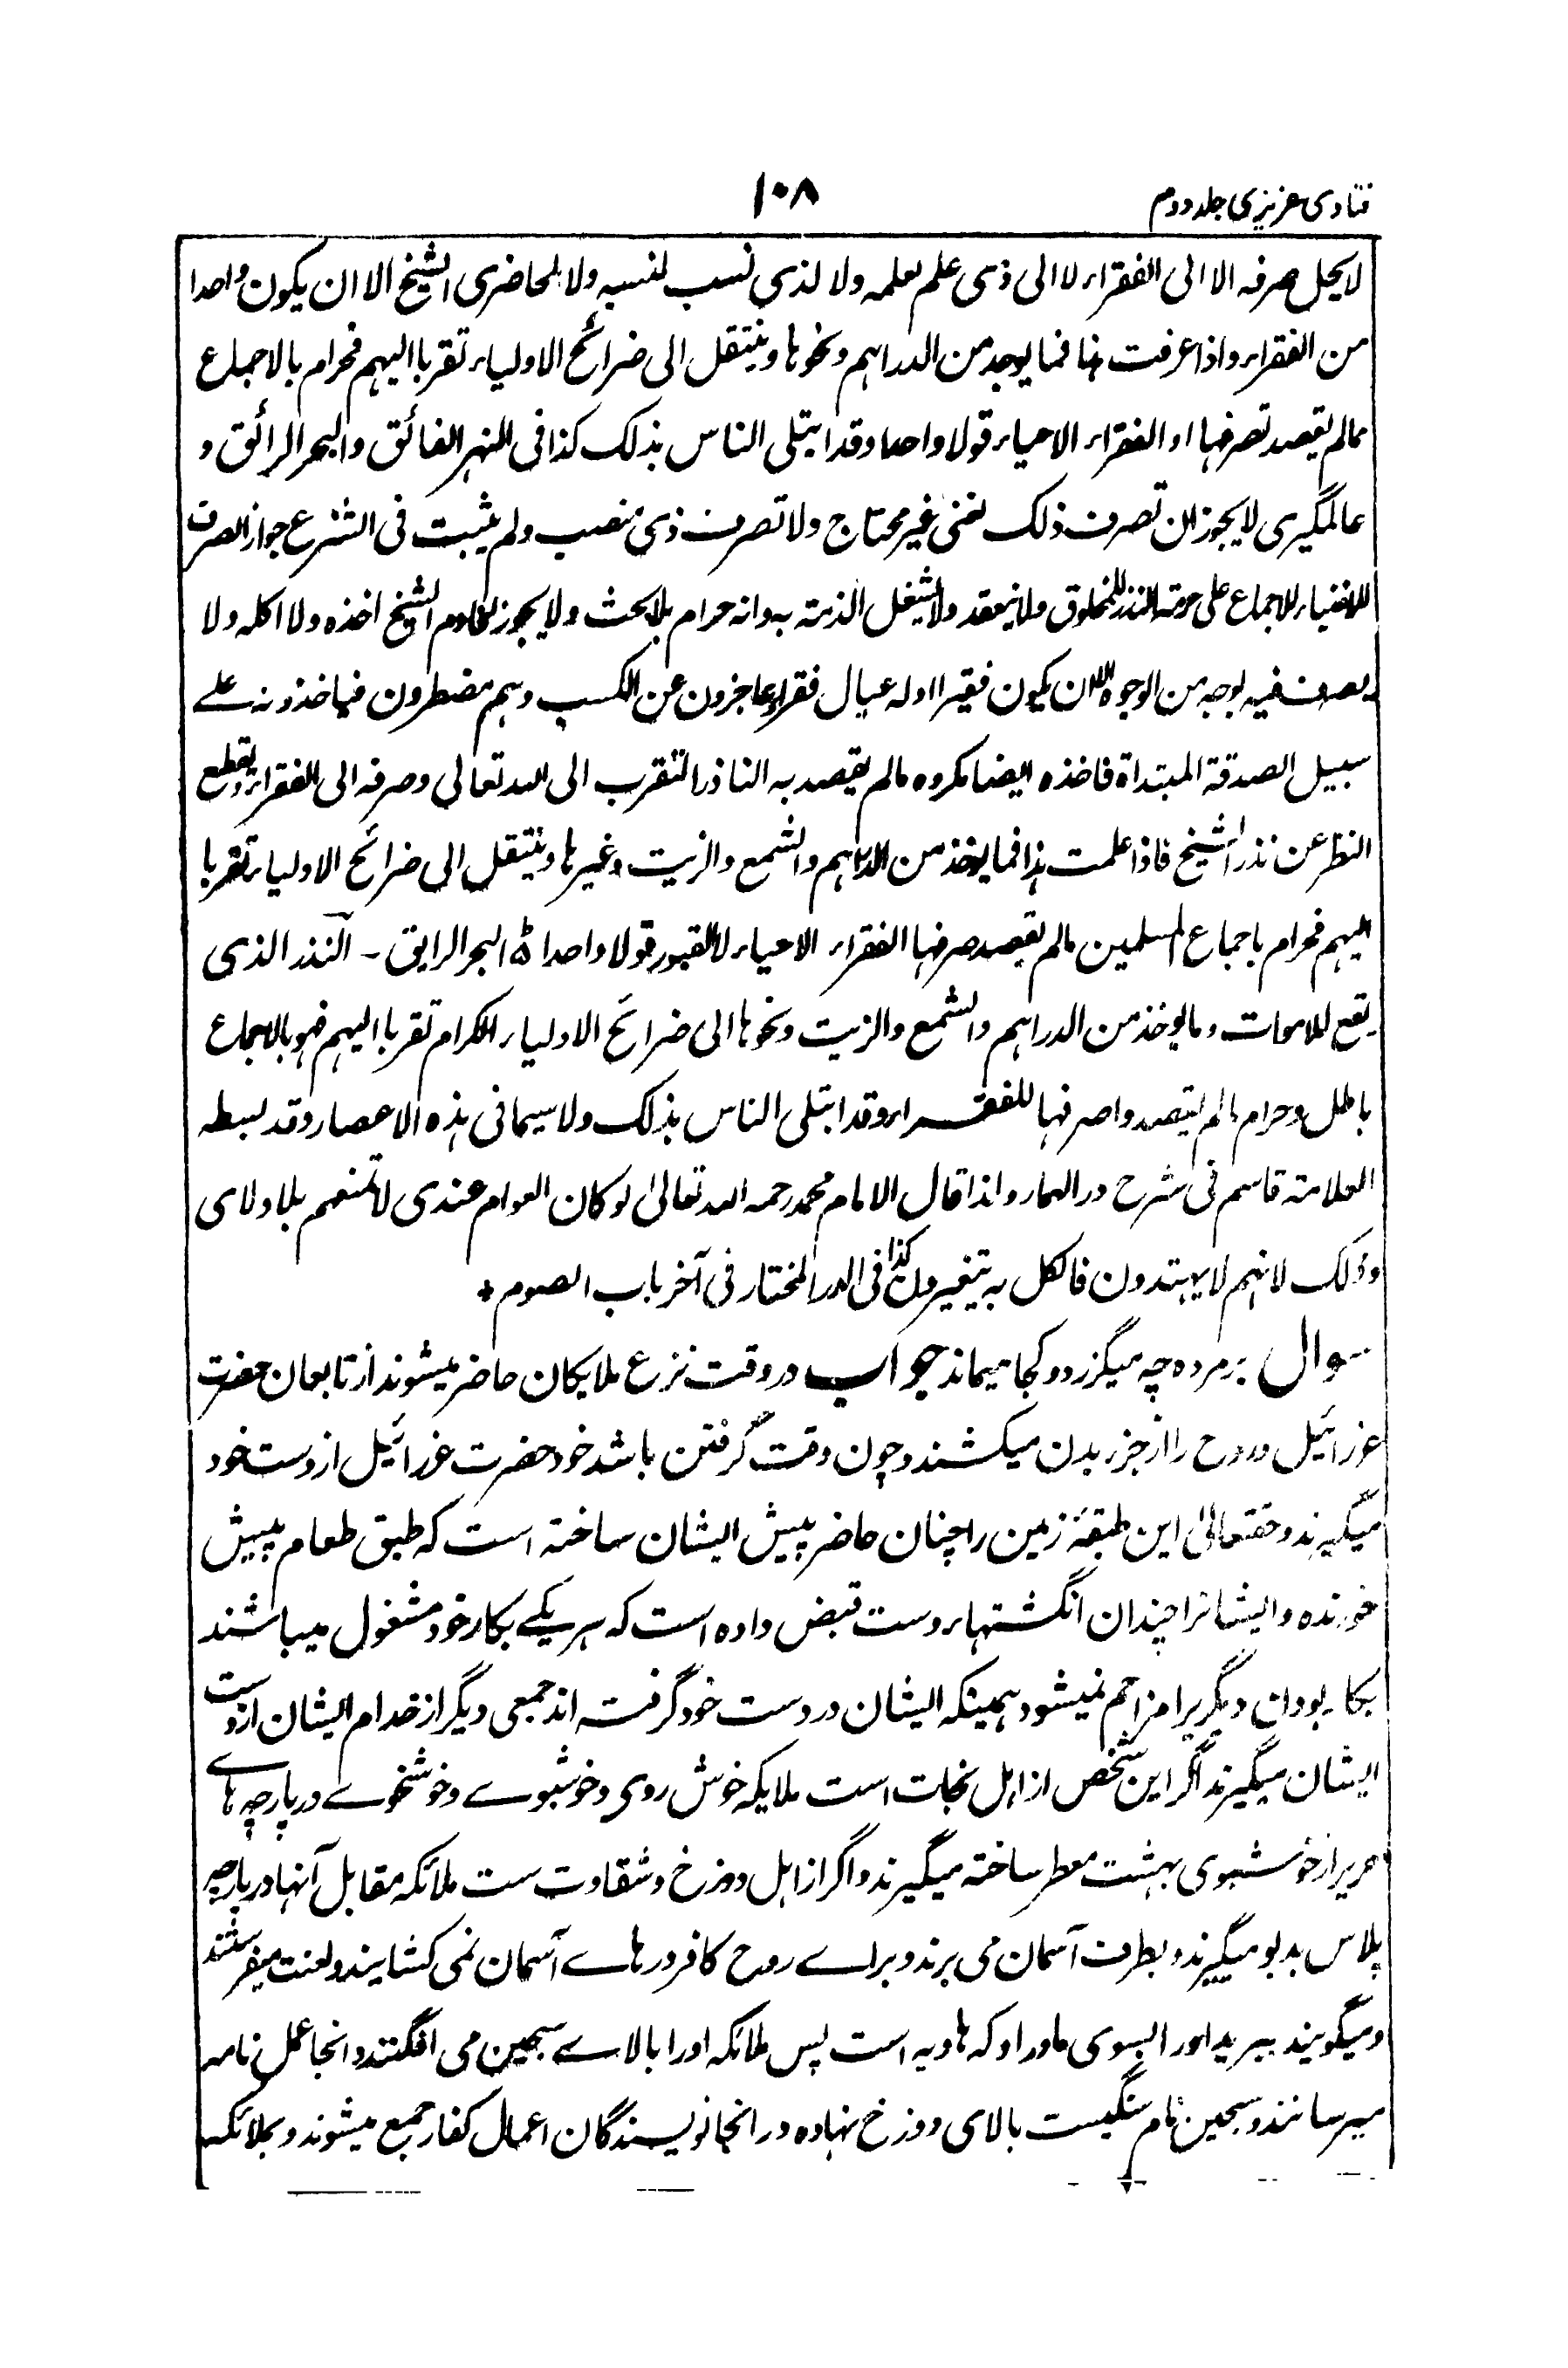 فتاوی عزیزی جلد دوم
۱۰۸
لایحل صرفہ الا الی الفقراء لا الی ذی علم لعلمہ ولا لذی نسب لنسبہ ولا لحاضری الشیخ الا ان یکون واحدا
من الفقراء واذا عرفت ہذا فما یوجد من الدراہم ونحوہا وینتقل الی ضرائح الاولیاء تقربا الیہم فحرام بالاجماع
مالم یقصد تصرفہا او الفقراء الاحیاء قولا واحدا وقد ابتلی الناس بذلک کذا فی النہر الفائق والبحر الرائق و
عالمگیری لا یجوز ان تصرف ذلک لغنی غیر محتاج ولا تصرف ذی منصب ولم یثبت فی الشرع جواز الصرف
للاغنیاء للاجماع علی حرمۃ النذر للمخلوق ولا ینعقد ولا یشتغل الذمتہ بہ وانہ حرام بلا بحث ولا یجوز لخادم الشیخ اخذہ ولا اکلہ ولا
یصرف فیہ بوجہ من الوجوہ الا ان یکون فقیرا اولہ عیال فقراء عاجزون عن الکسب وہم مضطرون فیاخذونہ علے
سبیل الصدقۃ المبتداۃ فاخذہ ایضا مکروہ مالم یقصد بہ الناذر التقرب الی اللہ تعالی وصرفہ الی الفقراء ویقطع
النظر عن نذر الشیخ فاذا علمت ہذا فما یوخذ من الدراہم والشمع والزیت وغیرہا وینتقل الی ضرائح الاولیاء تقربا
الیہم فحرام باجماع المسلمین مالم یقصد صرفہا الفقراء الاحیاء لا القبور قولا واحدا ۵ البحر الرایق ۔ النذر الذی
یقع للاموات وما یوخذ من الدراہم والشمع والزیت ونحوہا الی ضرائح الاولیاء الکرام تقربا الیہم فہو بالاجماع
باطل وحرام مالم یقصدوا صرفہا للفقراء وقد ابتلی الناس بذلک ولا سیما فی ہذہ الاعصار وقد بسطہ
العلامتہ قاسم فی شرح درالبحار واذا قال الامام محمد رحمہ اللہ تعالیٰ لو کان العوام عندی لا تمنعہم بلا ولای
وذلک لانہم لا یہتدون فالکل بہ یتغیرون کذا فی الدر المختار فی آخر باب الصوم *
سوال بر مردہ چہ میگزرد و کجا میماند جواب در وقت نزع ملایکان حاضر میشوند از تابعان حضرت
عزرائیل و روح را از جزء بدن میکشند و چون وقت گرفتن باشد خود حضرت عزرائیل از دست خود
میگیرند و حقتعالیٰ این طبقۂ زمین را چنان حاضر پیش ایشان ساختہ است کہ طبق طعام پیش
خورندہ و ایشانرا چندان انگشتہاء دست قبض دادہ است کہ ہر یکے بکار خود مشغول میباشند
بکار بودان دیگریرا مزاحم نمیشود ہمینکہ ایشان در دست خود گرفتہ اند جمعی دیگر از خدام ایشان از دست
ایشان میگیرند اگر این شخص از اہل نجات است ملایکہ خوش روی و خوشبوے و خوشخوے در پارچہ ہاے
حریر از خوشبوی بہشت معطر ساختہ میگیرند و اگر از اہل دوزخ و شقاوت ست ملائکہ مقابل آنہا در پارچہ
پلاس بدبو میگیرند و بطرف آسمان می برند و براے روح کافر درہاے آسمان نمی کشایند و لعنت میفرستند
و میگویند ببرید اورا بسوی مادر او کہ ہاویہ است پس ملائکہ اورا بالاے سجین می افگنند و انجا عمل نامہ
میرسانند و سجین نام سنگیست بالای دوزخ نہادہ در انجا نویسندگان اعمال کفار جمع میشوند و بملائکہ